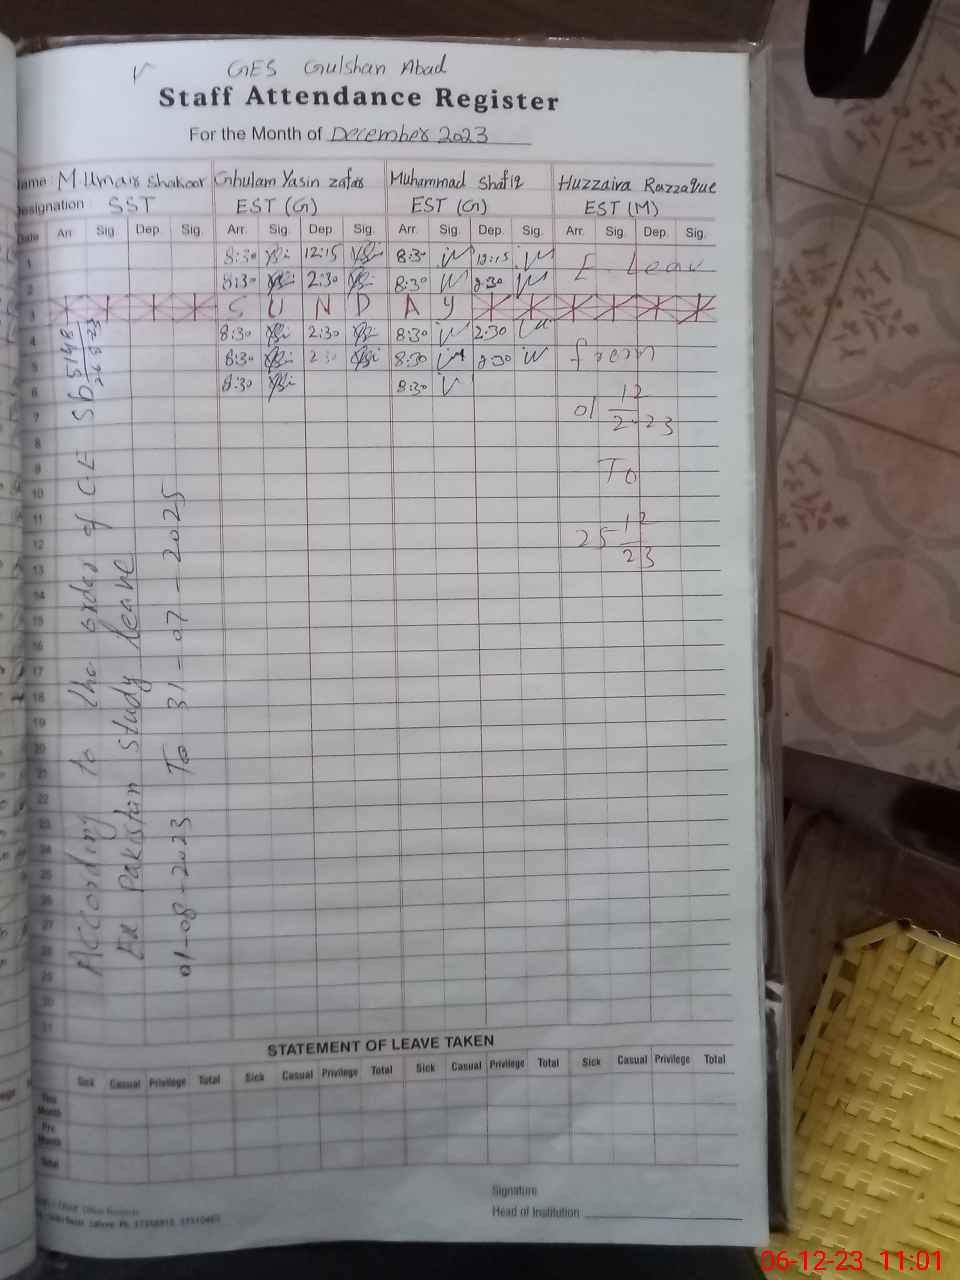 GES Gulshan Abad
Staff Attendance Register
For the Month of December 2023
Name: M Umair Shakoor Ghulam Yasin Zafar Muhammad Shafiq Huzzaira Razzaque
Designation: SST EST (G) EST (G) EST (M)
Date Arr. Sig. Dep. Sig. Arr. Sig. Dep. Sig. Arr. Sig. Dep. Sig. Arr. Sig. Dep. Sig.
1 8:30 12:15 8:30 12:15 E. Leav
2 8:30 2:30 8:30 2:30
3 S U N D A Y
4 8:30 2:30 8:30 2:30
5 8:30 2:30 8:30 2:30 from
6 8:30 8:30
7 01 12
2-23
8
9 To
10
11
12 25-12
23
13
14
15
16
17
18
19
20
21
22
23
24
25
26
27
28
29
30
31
According to the order of C.E 5148
26-8-23
Ex Pakistan Study leave
01-08-2023 To 31-07-2025
STATEMENT OF LEAVE TAKEN
Sick Casual Privilege Total Sick Casual Privilege Total Sick Casual Privilege Total Sick Casual Privilege Total
This Month
Pre. Month
Total
Signature
Head of Institution
06-12-23 11:01